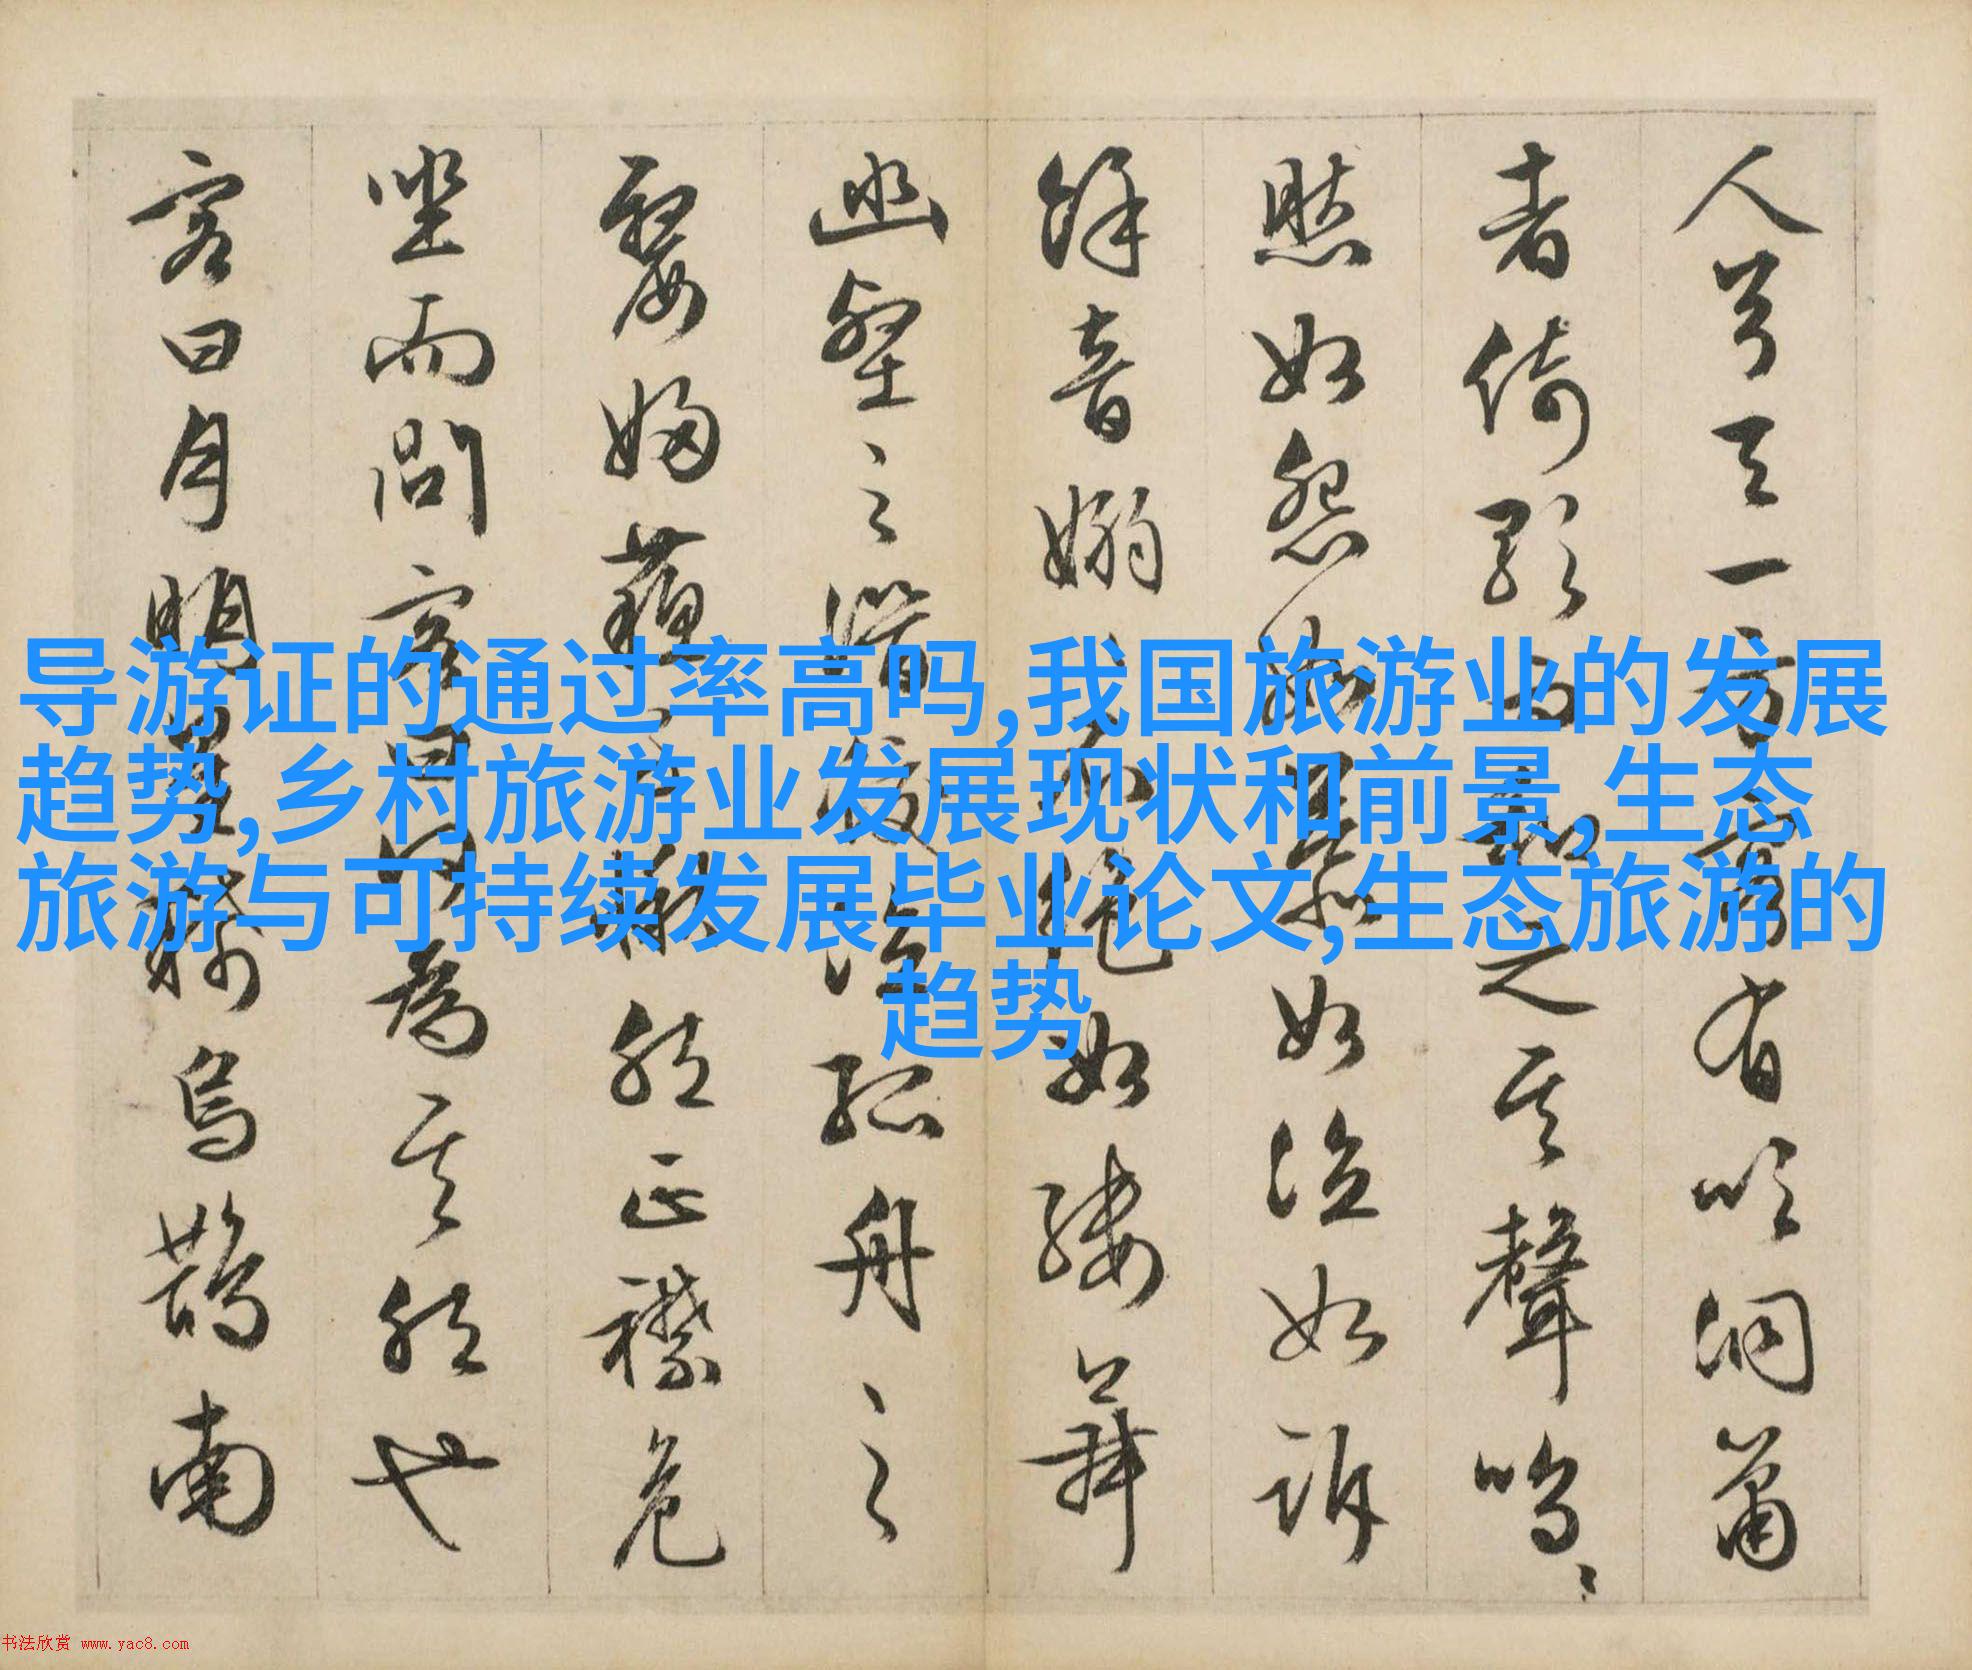 人兮天一方客有吹洞萧
者倚歌而和之其聲鳴、
然如怨如慕如泣如訴
餘音嫋、不絶如縷舞
幽壑之潜蛟泣孤舟之
嫠婦蘇子愀然正襟危
坐而問客曰何為其然也
客曰月明星稀烏鵲南
导游证的通过率高吗,我国旅游业的发展
趋势,乡村旅游业发展现状和前景,生态
旅游与可持续发展毕业论文,生态旅游的
趋势
书法欣赏 www.yac8.com